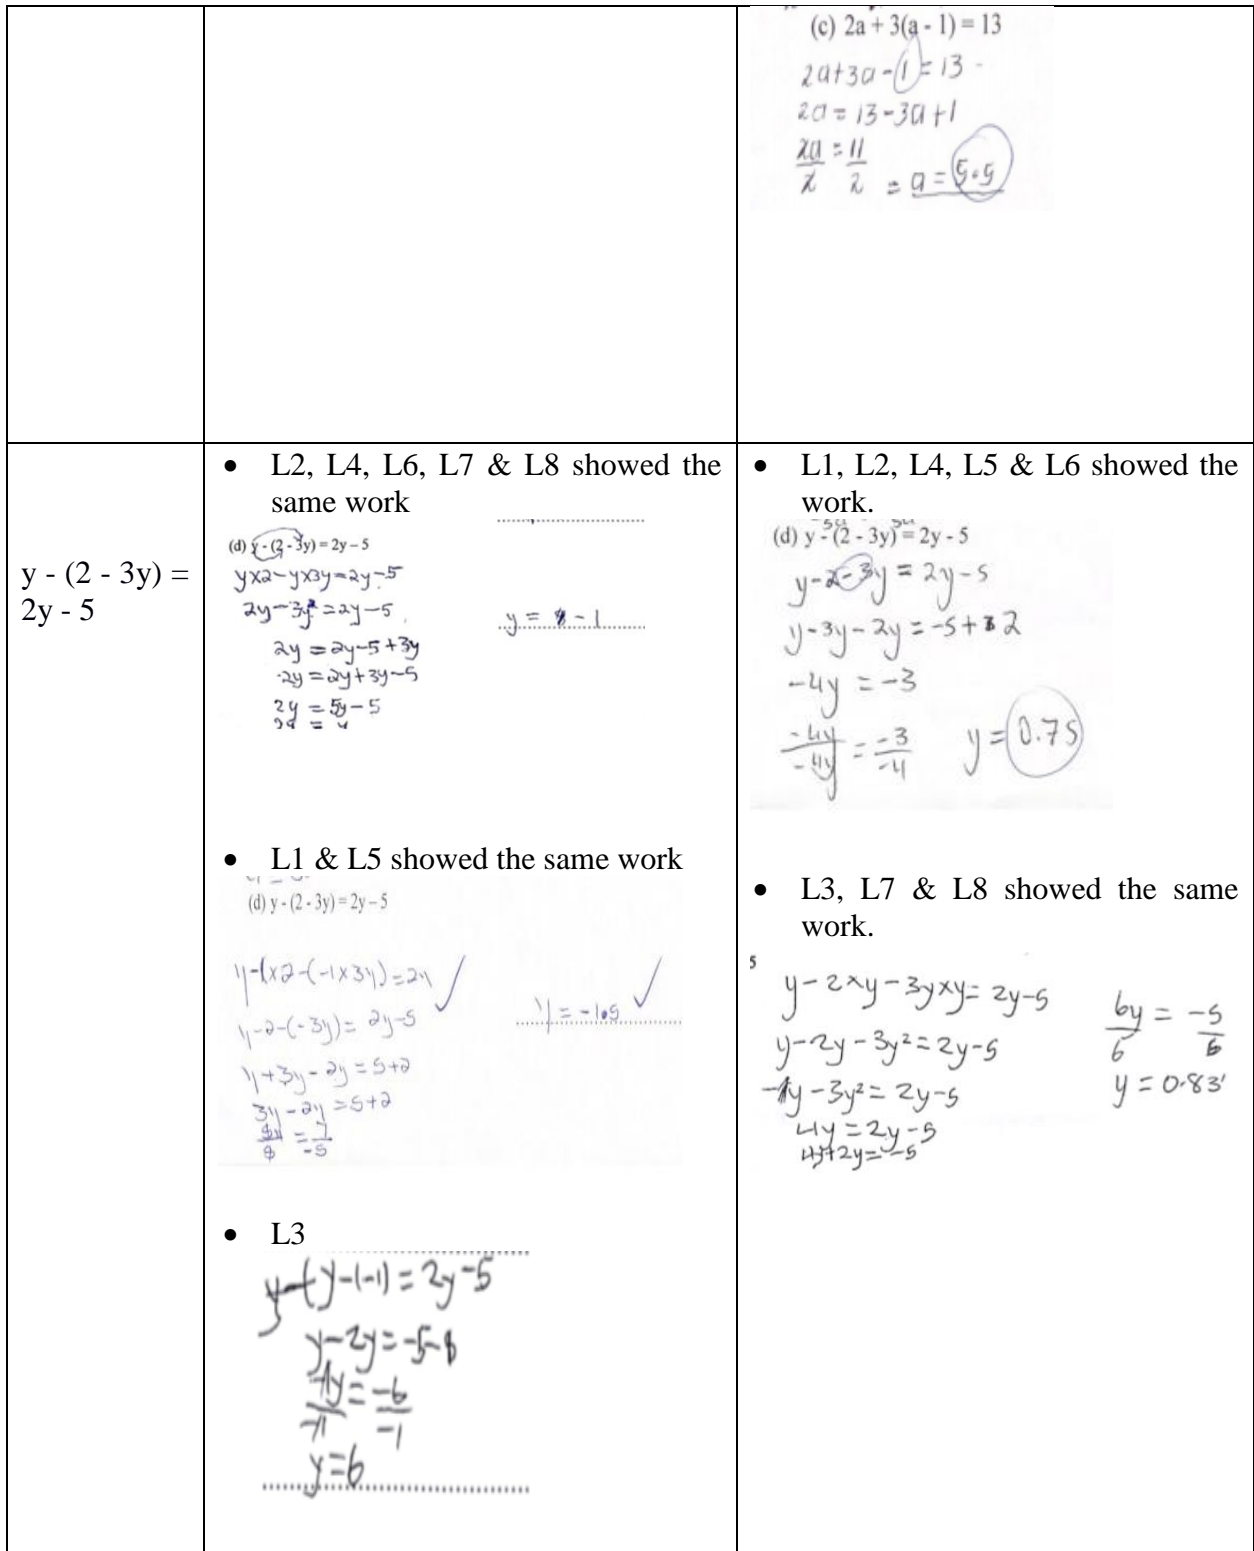 (c) 2a + 3(a - 1) = 13
2a+3a-1 = 13
2a = 13-3a+1
2a/2 = 11/2 = a = 5.5
y - (2 - 3y) =
2y - 5
• L2, L4, L6, L7 & L8 showed the
same work
(d) y - (2 - 3y) = 2y – 5
yx2-yx3y=2y-5
2y-3y²=2y-5
2y = 2y-5+3y
2y = 2y+3y-5
2y = 5y-5
y = -1
• L1 & L5 showed the same work
(d) y - (2 - 3y) = 2y – 5
y-1x2-(-1x3y)=2y
y-2-(-3y)= 2y-5
y+3y-2y=5+2
3y-2y=5+2
y = -1.5
• L3
y-(y-(-1)=2y-5
y-2y=-5-
-1y/-1 = -6/-1
y=6
• L1, L2, L4, L5 & L6 showed the
work.
(d) y - (2 - 3y) = 2y - 5
y-2-3y = 2y-5
y-3y-2y = -5+2
-4y = -3
-4y/-4y = -3/-4 y = 0.75
• L3, L7 & L8 showed the same
work.
5
y-2xy-3yxy= 2y-5
y-2y-3y²=2y-5
-1y-3y²= 2y-5
4y=2y-5
4y+2y=-5
6y/6 = -5/6
y = 0.83